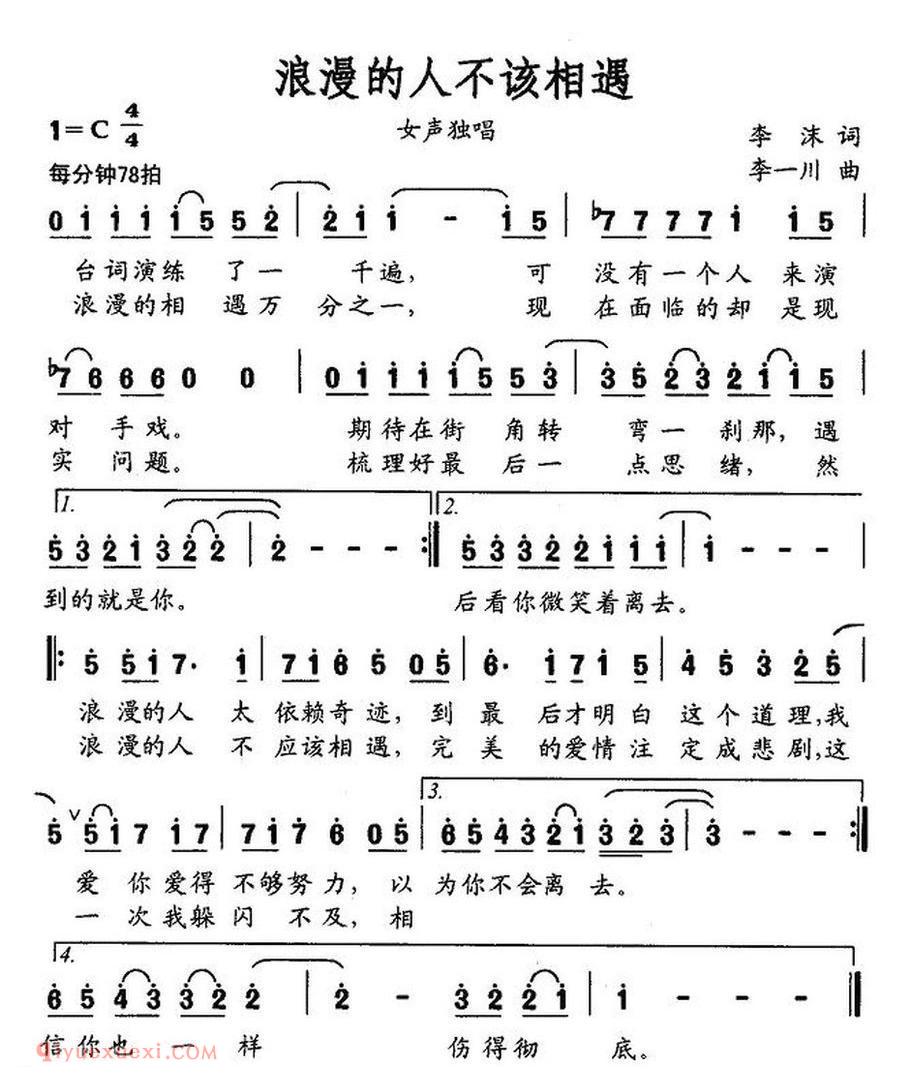 浪漫的人不该相遇
1=C 4/4 女声独唱 李沫词
每分钟78拍 李一川 曲
0 1 1 1 1 5 5 2 | 2 1 1 - 1 5 | ♭7 7 7 7 1 1 5 |
台词演练 了一 千遍, 可 没有一个人 来演
浪漫的相 遇万 分之一, 现 在面临的却 是现
♭7 6 6 6 0 0 | 0 1 1 1 1 5 5 3 | 3 5 2 3 2 1 1 5 |
对 手戏。 期待在街 角转 弯一 刹那, 遇
实 问题。 梳理好最 后一 点思 绪, 然
1. 2.
5 3 2 1 3 2 2 | 2 - - - :| 5 3 3 2 2 1 1 1 | 1 - - - |
到的就是你。 后看你微笑着离去。
|: 5 5 1 7. 1 | 7 1 6 5 0 5 | 6. 1 7 1 5 | 4 5 3 2 5 |
浪漫的人 太 依赖奇迹, 到 最 后才明白 这个道理,我
浪漫的人 不 应该相遇, 完 美 的爱情注 定成悲剧,这
3.
5 ∨ 5 1 7 1 7 | 7 1 7 6 0 5 | 6 5 4 3 2 1 3 2 3 | 3 - - - :|
爱 你爱得 不够努力, 以 为你不会离 去。
一 次我躲闪 不及, 相
4.
6 5 4 3 3 2 2 | 2 - 3 2 2 1 | 1 - - - |
信你也 一 样 伤得彻 底。
qiyuexuexi.com